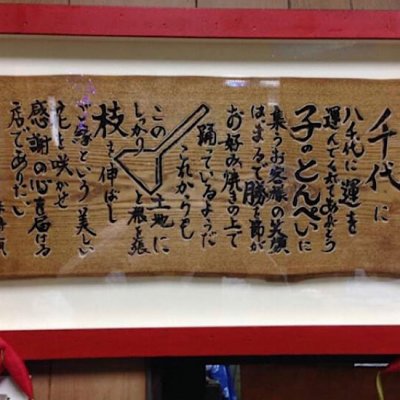 千代に
八千代に運を
運んでくれてありがとう
子のとんぺいに
集うお客様の笑顔
はまるで勝を節が
お好み焼きの上で
踊っているようだ
これからも
この土地に
しっかりと根を張
枝を伸ばし
ご縁という美しい
花を咲かせ
感謝の心を届ける
店でありたい